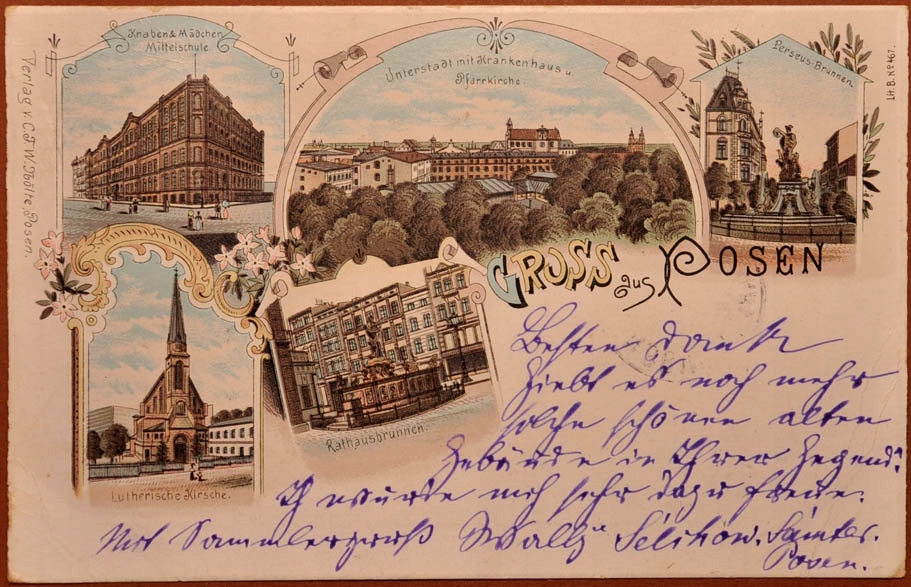 Knaben & Mädchen
Mittelschule.
Unterstadt mit Krankenhaus u.
Pfarrkirche.
Perseus-Brunnen.
Lit. B. No 467.
Verlag v. C. F. W. Nölte, Posen.
GRUSS aus POSEN
Lutherische Kirsche.
Rathausbrunnen.
Besten Dank
Giebt es noch mehr
solche schönen alten
Gebäude in Ihrer Gegend?
Ich würde mich sehr dazu freue.
Mit Sammlergruß Wally Selchow.
Posen.